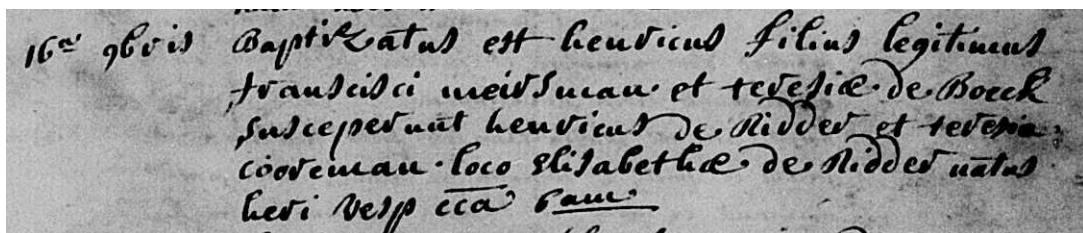 16ª 9bris Baptizatus est henricus filius legitimus
francisci meirsman et teresiæ de Boeck
susceperunt henricus de Ridder et teresia
cooreman loco Elisabethæ de Ridder natus
heri vesp cca 6am